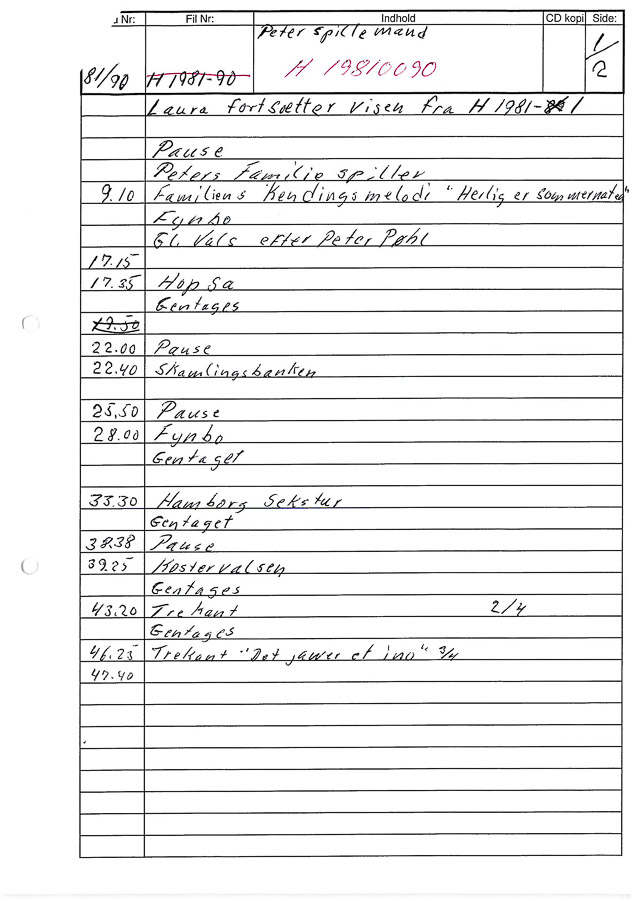 Nr: Fil Nr: Indhold CD kopi Side:
Peter spillemand
81/90 H 1981-90 H 19810090 1/2
Laura fortsætter visen fra H 1981-1
Pause
Peters Familie spiller
9.10 Familiens Kendingsmelodi "Herlig er sommernaten"
Fynbo
Gl. Vals efter Peter Pøhl
17.15
17.35 Hopsa
Gentages
19.50
22.00 Pause
22.40 Skamlingsbanken
25,50 Pause
28.00 Fynbo
Gentaget
33.30 Hamborg Sekstur
Gentaget
38.38 Pause
39.25 Kostervalsen
Gentages
43.20 Trekant 2/4
Gentages
46.25 Trekant "Det jawer et ino" 3/4
47.40